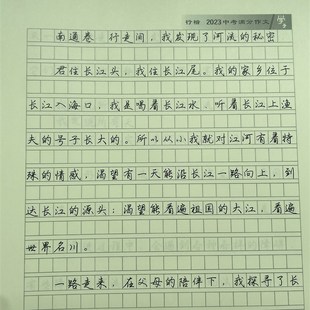 行楷 2023中考满分作文
南通卷 行走间，我发现了河流的秘密
君住长江头，我住长江尾。我的家乡位于
长江入海口，我是喝着长江水、听着长江上渔
夫的号子长大的。所以从小我就对江河有着特
殊的情感，渴望有一天能沿长江一路向上，到
达长江的源头；渴望能看遍祖国的大江，看遍
世界名川。
一路走来，在父母的陪伴下，我探寻了长